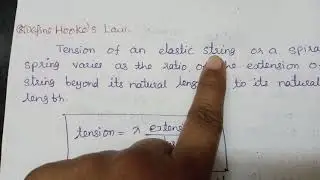 Define Hooke's Law.
Tension of an elastic string or a spiral
spring varies as the ratio of the extension of
string beyond its natural length to its natural
length.
tension = λ